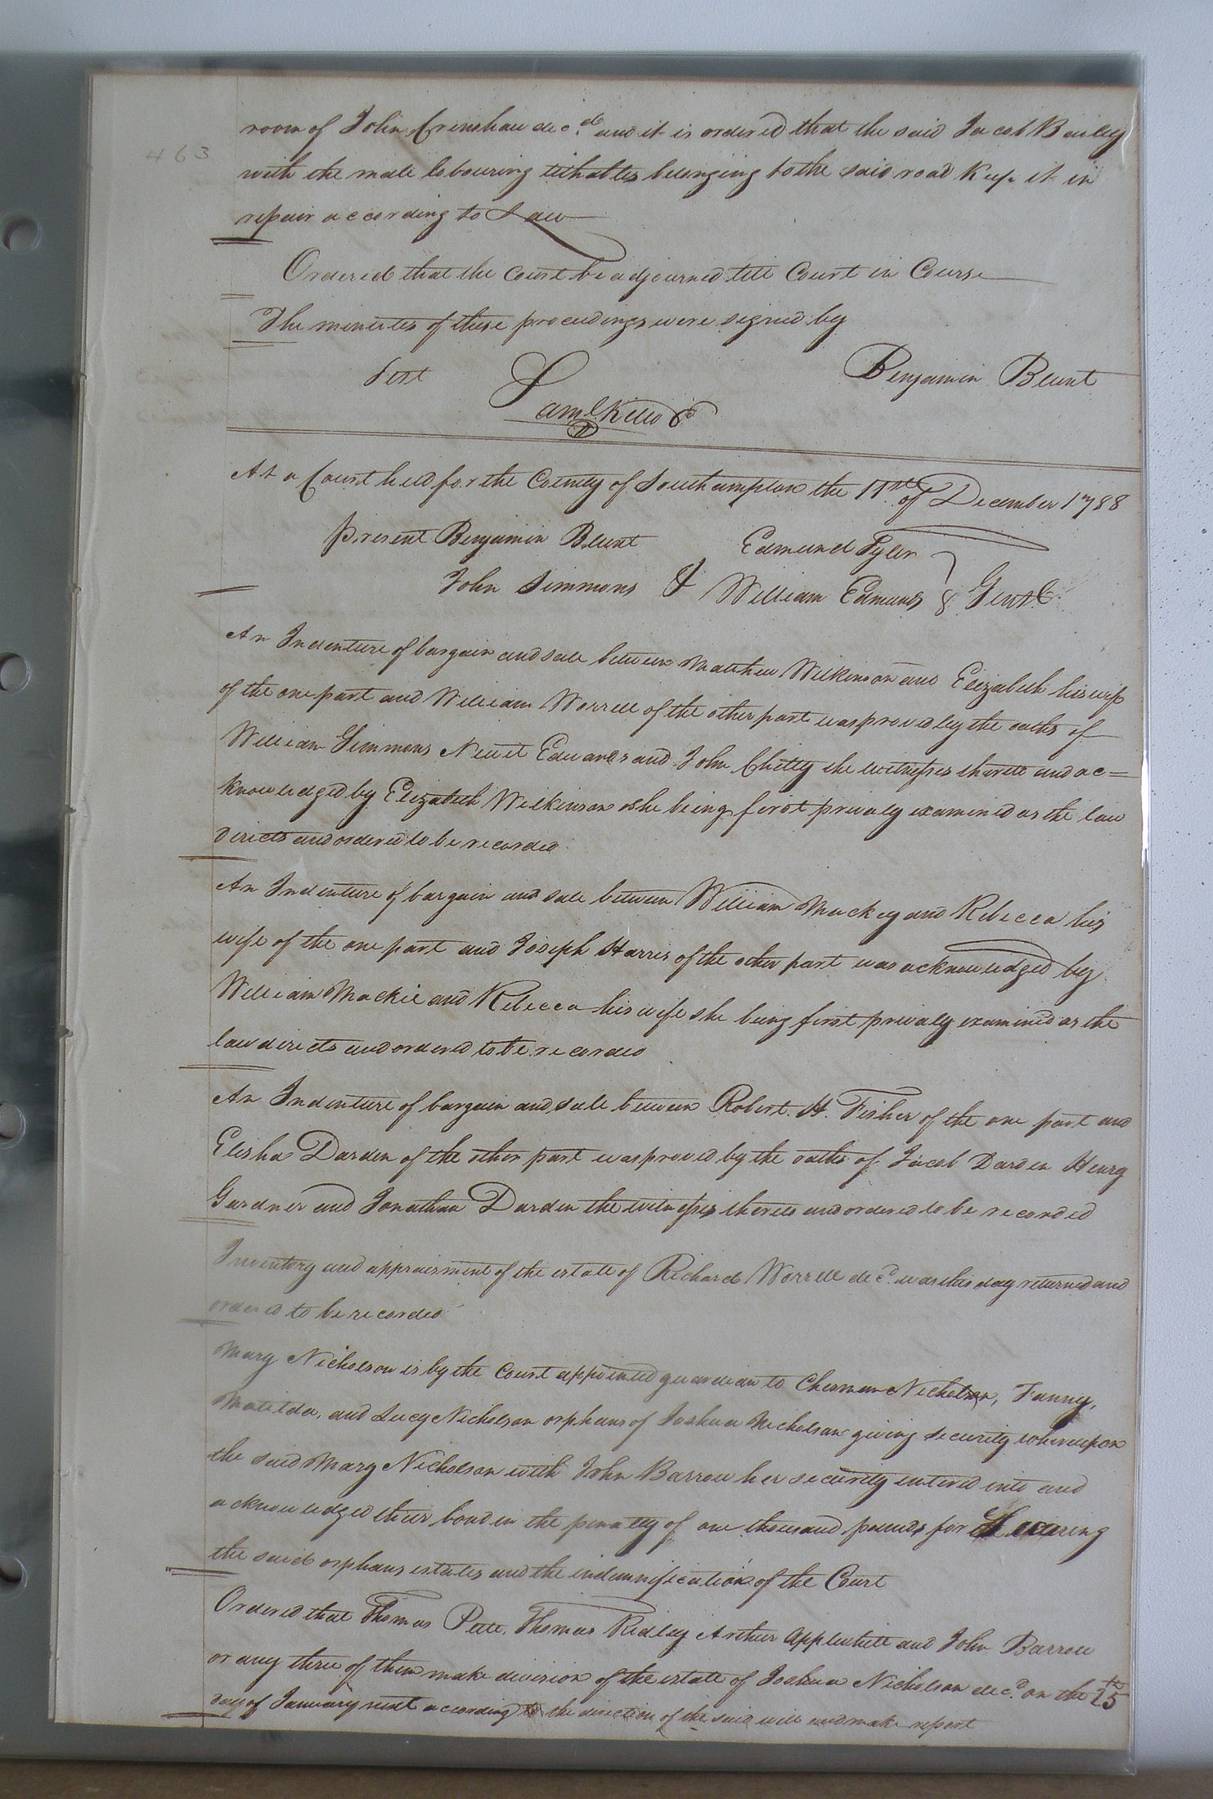 463
room of John Crenshaw decd. and it is ordered that the said Jacob Bailey
with the male labouring tithables belonging to the said road keep it in
repair according to Law
Ordered that the Court be adjourned till Court in Course
The minutes of these proceedings were signed by
Test
Benjamin Blunt
Saml. Kello
At a Court held for the County of Southampton the 11th of December 1788
Present Benjamin Blunt Edmund Tyler
John Simmons & William Edmunds Gent.
An Indenture of bargain and sale between Matthew Wilkinson and Elizabeth his wife
of the one part and William Worrell of the other part was proved by the oaths of
William Simmons Newit Edwards and John Chitty the witnesses thereto and ac=
knowledged by Elizabeth Wilkinson she being first privaly examined as the law
directs and ordered to be recorded
An Indenture of bargain and sale between William Mackey and Rebecca his
wife of the one part and Joseph Harris of the other part was acknowledged by
William Mackie and Rebecca his wife she being first privaly examined as the
law directs and ordered to be recorded
An Indenture of bargain and sale between Robert H. Fisher of the one part and
Elisha Darden of the other part was proved by the oaths of Jacob Darden Henry
Gardner and Jonathan Darden the witnesses thereto and ordered to be recorded
Inventory and appraisment of the estate of Richard Worrell decd. was this day returned and
ordered to be recorded
Mary Nicholson is by the Court appointed guardian to Nicholson, Fanny,
Matilda, and Lucy Nicholson orphans of Joshua Nicholson giving security whereupon
the said Mary Nicholson with John Barrow her security entered into and
acknowledged their bond in the penalty of one thousand pounds for securing
the said orphans estates and the indemnification of the Court
Ordered that Thomas Pete, Thomas Ridley Arthur Applewhite and John Barrow
or any three of them make division of the estate of Joshua Nicholson decd. on the 15th
day of January next according to the direction of the said will and make report